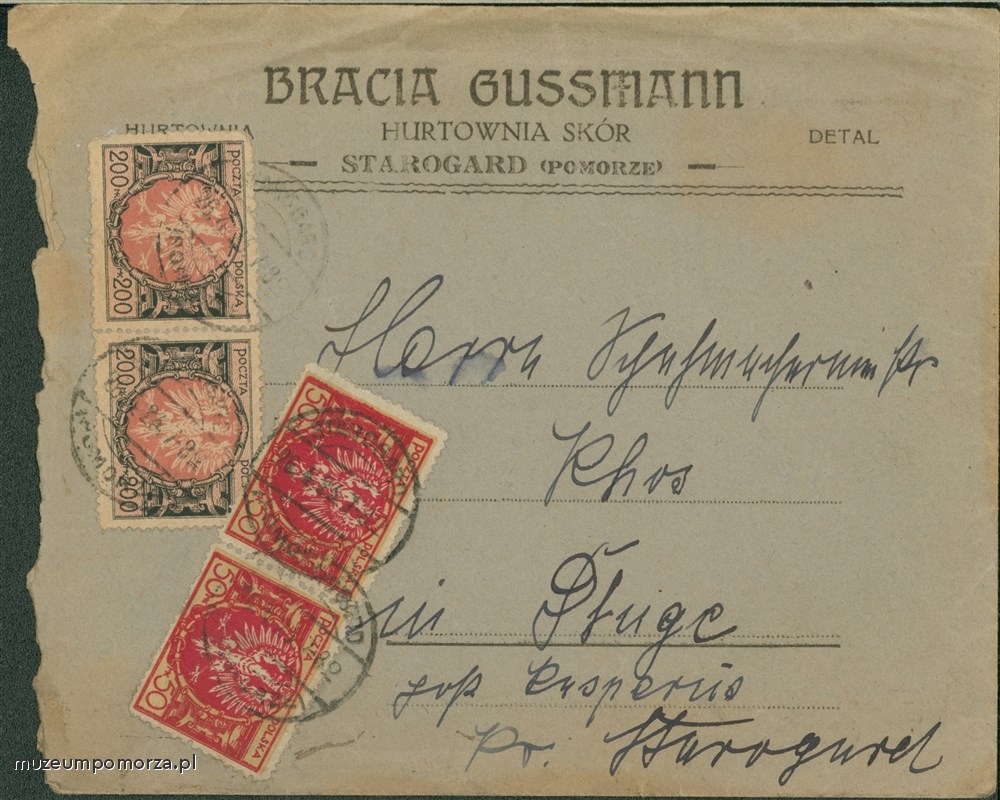 BRACIA GUSSMANN
HURTOWNIA HURTOWNIA SKÓR DETAL
STAROGARD (POMORZE)
200 POCZTA
200 POLSKA
200 POCZTA
200
50 POCZTA
50 POLSKA
50 POCZTA
50 POLSKA
Herrn Schuhmachermeistr
Khos
in Długe
Pr. Starogard
muzeumpomorza.pl